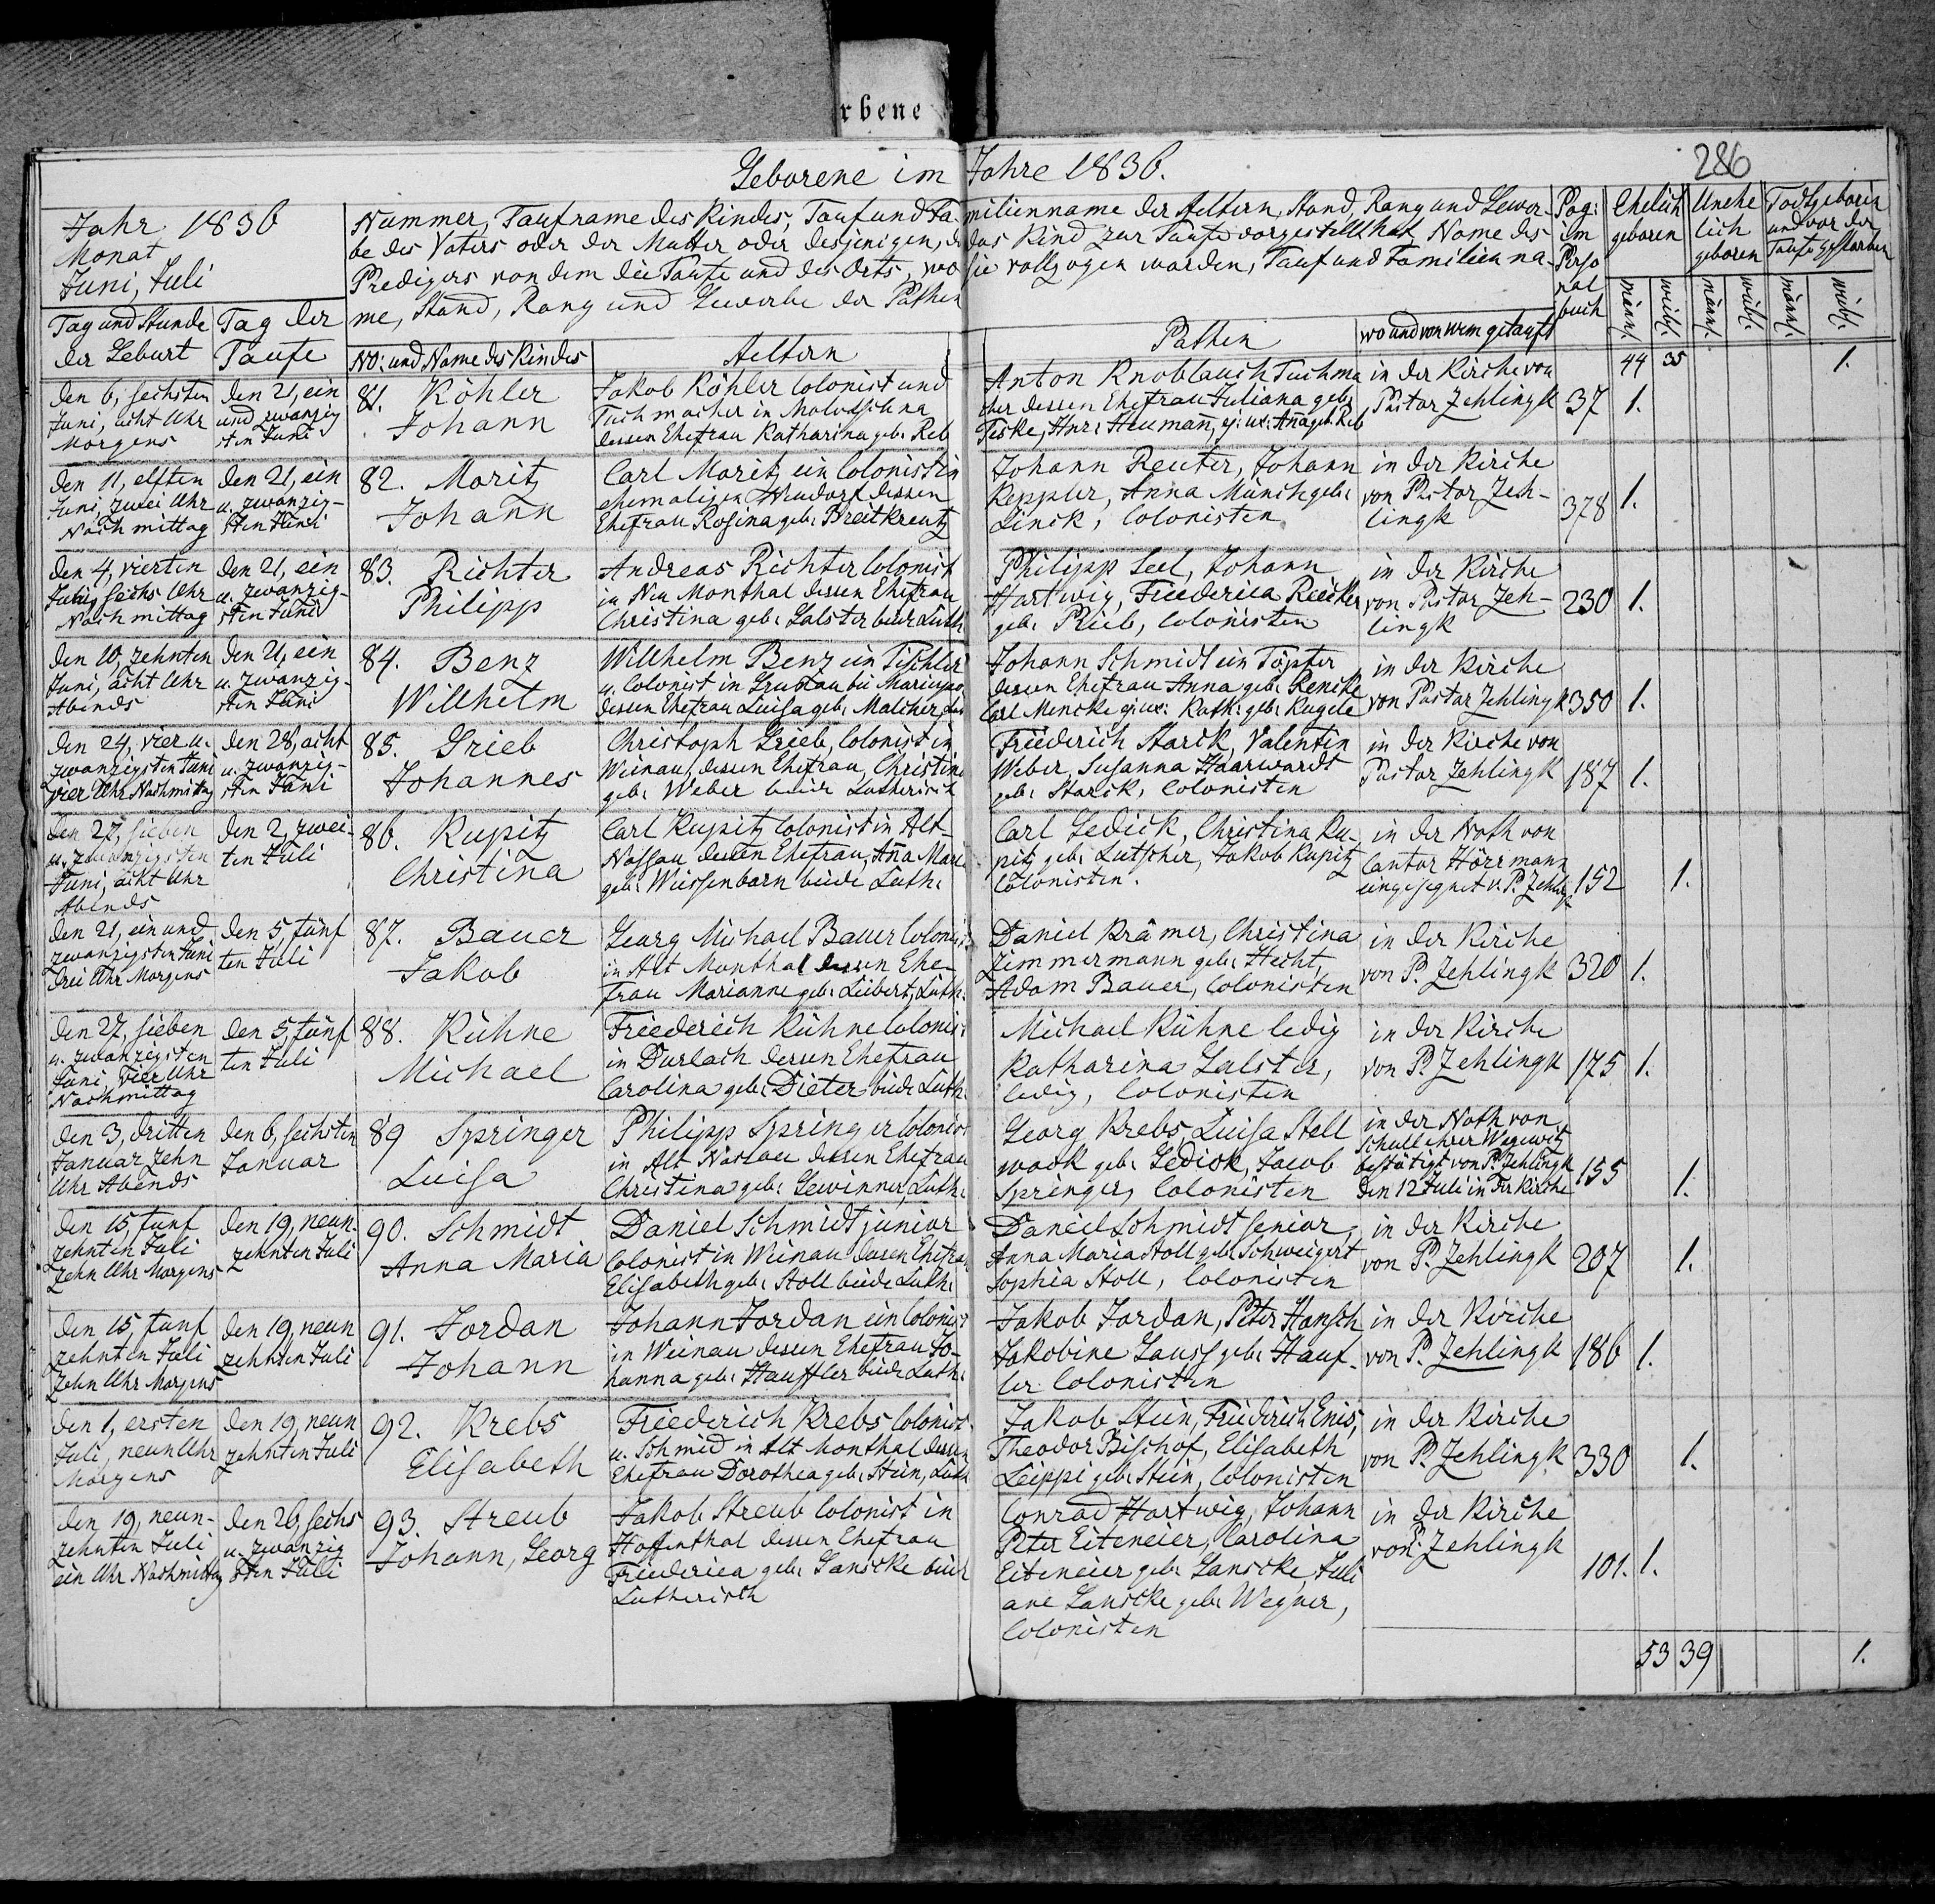 rbene
Geborene im Jahre 1836.
286
Jahr 1836
Monat
Juni, Juli
Nummer, Taufname des Kindes, Tauf und Familienname der Aeltern, Stand, Rang und Gewer-
be des Vaters oder der Mutter oder desjenigen, der das Kind zur Taufe vorgestellt hat, Name des
Predigers von dem die Taufe und des Orts, wo sie vollzogen worden, Tauf und Familienna-
me, Stand, Rang und Gewerbe der Pathen
Pag:
im
Perso
nal
buch
Ehelich
geboren
Unehe
lich
geboren
Todtgeboren
und vor der
Taufe gestorben
männl.
weibl.
männl.
weibl.
männl.
weibl.
Tag und Stunde
der Geburt
Tag der
Taufe
No: und Name des Kindes
Aeltern
Pathen
wo und von wem getauft
44 35 1.
den 6, sechsten
Juni, acht Uhr
Morgens
den 21, ein
und zwanzig
sten Juni
81. Köhler
Johann
Jakob Köhler Colonist und
Tuchmacher in
dessen Ehefrau Katharina geb: Reb
Anton Knoblauch Tuchma
cher dessen Ehefrau Juliana geb:
Teske, Hnr: Heuman̄, ej: ux: An̄a geb. Reb
in der Kirche von
Pastor Zehlingk
37 1.
den 11, elften
Juni, zwei Uhr
Nachmittag
den 21, ein
u. zwanzig-
sten Juni
82. Moritz
Johann
Carl Moritz ein Colonist in
ehemaligen dessen
Ehefrau Rosina geb: Breitkreutz
Johann Reuter, Johann
Keppler, Anna Münch geb:
Linck, Colonisten
in der Kirche
von Pastor Zeh-
lingk
378 1.
den 4, vierten
Juny sechs Uhr
Nachmittag
den 21, ein
u. zwanzig-
sten Juni
83. Richter
Philipp
Andreas Richter Colonist
in Neu Monthal dessen Ehefrau
Christina geb: Galster beide Luth:
Philipp Seel, Johann
Hartwig, Friederica Riecker
geb: Rieb, Colonisten
in der Kirche
von Pastor Zeh-
lingk
230 1.
den 10, zehnten
Juni, acht Uhr
Abends
den 21, ein
u. zwanzig-
sten Juni
84. Benz
Willhelm
Willhelm Benz ein Tischler
u. Colonist in Grunau bei Mariupo.
dessen Ehefrau Luisa geb: Malcher
Johann Schmidt ein Töpfer
dessen Ehefrau Anna geb: Rencke
Carl Mencke ej: ux: Kath: geb: Kugele
in der Kirche
von Pastor Zehlingk
350 1.
den 24, vier u.
zwanzigsten Juni
vier Uhr Nachmittag
den 28, acht
u. zwanzig-
sten Juni
85. Grieb
Johannes
Christoph Grieb, Colonist in
Weinau, dessen Ehefrau, Christina
geb: Weber beide Lutherisch
Friederich Starck, Valentin
Weber, Susanna Haarwardt
geb: Starck, Colonisten
in der Kirche von
Pastor Zehlingk
187 1.
den 27, sieben
u. zwanzigsten
Juni, acht Uhr
Abends
den 2, zwei-
ten Juli
86. Rupitz
Christina
Carl Rupitz Colonist in Alt-
Nassau dessen Ehefrau, An̄a Mari
geb: Weissenborn beide Luth:
Carl Gedick, Christina Ru-
pitz geb: Lutscher, Jakob Rupitz
Colonisten.
in der Noth von
Cantor Hörrmann
eingesegnet v. P. Zehlig
152 1.
den 21, ein und
zwanzigsten Juni
drei Uhr Morgens
den 5, fünf
ten Juli
87. Bauer
Jakob
Georg Michael Bauer Colonist
in Alt Monthal dessen Ehe-
frau Marianne geb: Liebert, Luth:
Daniel Krämer, Christina
Zimmermann geb: Hecht,
Adam Bauer, Colonisten
in der Kirche
von P. Zehlingk
320 1.
den 27, sieben
u. zwanzigsten
Juni, vier Uhr
Nachmittag
den 5, fünf
ten Juli
88. Kühne
Michael
Friederich Kühne Colonist
in Durlach dessen Ehefrau
Carolina geb: Dieter beide Luth:
Michael Kühne ledig
Katharina Galster,
ledig, Colonisten
in der Kirche
von P. Zehlingk
175 1.
den 3, dritten
Januar zehn
Uhr Abends
den 6, sechsten
Januar
89 Springer
Luisa
Philipp Springer Colonist
in Alt Nassau dessen Ehefrau
Christina geb: Gewinner, Luth:
Georg Krebs, Luisa Stell
wach geb: Gedick, Jacob
Springer, Colonisten
in der Noth von
Schullehrer Wegewitz
bestätigt von P. Zehlingk
den 12 Juli in der Kirche
155 1.
den 15, fünf
zehnten Juli
zehn Uhr Morgens
den 19, neun-
zehnten Juli
90. Schmidt
Anna Maria
Daniel Schmidt junior
Colonist in Weinau dessen Ehefrau
Elisabeth geb: Stoll beide Luth:
Daniel Schmidt senior,
Anna Maria Stoll geb: Schweigert
Sophia Stoll, Colonisten
in der Kirche
von P. Zehlingk
207 1.
den 15, fünf
zehnten Juli
zehn Uhr Morgens
den 19, neun
zehnten Juli
91. Jordan
Johann
Johann Jordan ein Colonist
in Weinau dessen Ehefrau Jo-
hanna geb: Hauffler beide Luth:
Jakob Jordan, Peter Hansch
Jakobine Gauss geb: Hauf-
ler Colonisten
in der Kirche
von P. Zehlingk
186 1.
den 1, ersten
Juli, neun Uhr
Morgens
den 19, neun
zehnten Juli
92. Krebs
Elisabeth
Friederich Krebs Colonist
u. Schmid in Alt Monthal dessen
Ehefrau Dorothea geb: Stein, Luth
Jakob Stein, Friederich Enis,
Theodor Bischof, Elisabeth
Leippi geb: Stein, Colonisten
in der Kirche
von P. Zehlingk
330 1.
den 19, neun-
zehnten Juli
ein Uhr Nachmittag
den 26, sechs
u. zwanzig
sten Juli
93. Streub
Johann, Georg
Jakob Streub Colonist in
Hoffenthal dessen Ehefrau
Friederica geb: Janscke beide
Lutherisch
Conrad Hartwig, Johann
Peter Eiteneier, Carolina
Eiteneier geb: Janscke, Juli
ane Janscke geb: Wegner,
Colonisten
in der Kirche
von P. Zehlingk
101. 1.
53 39 1.